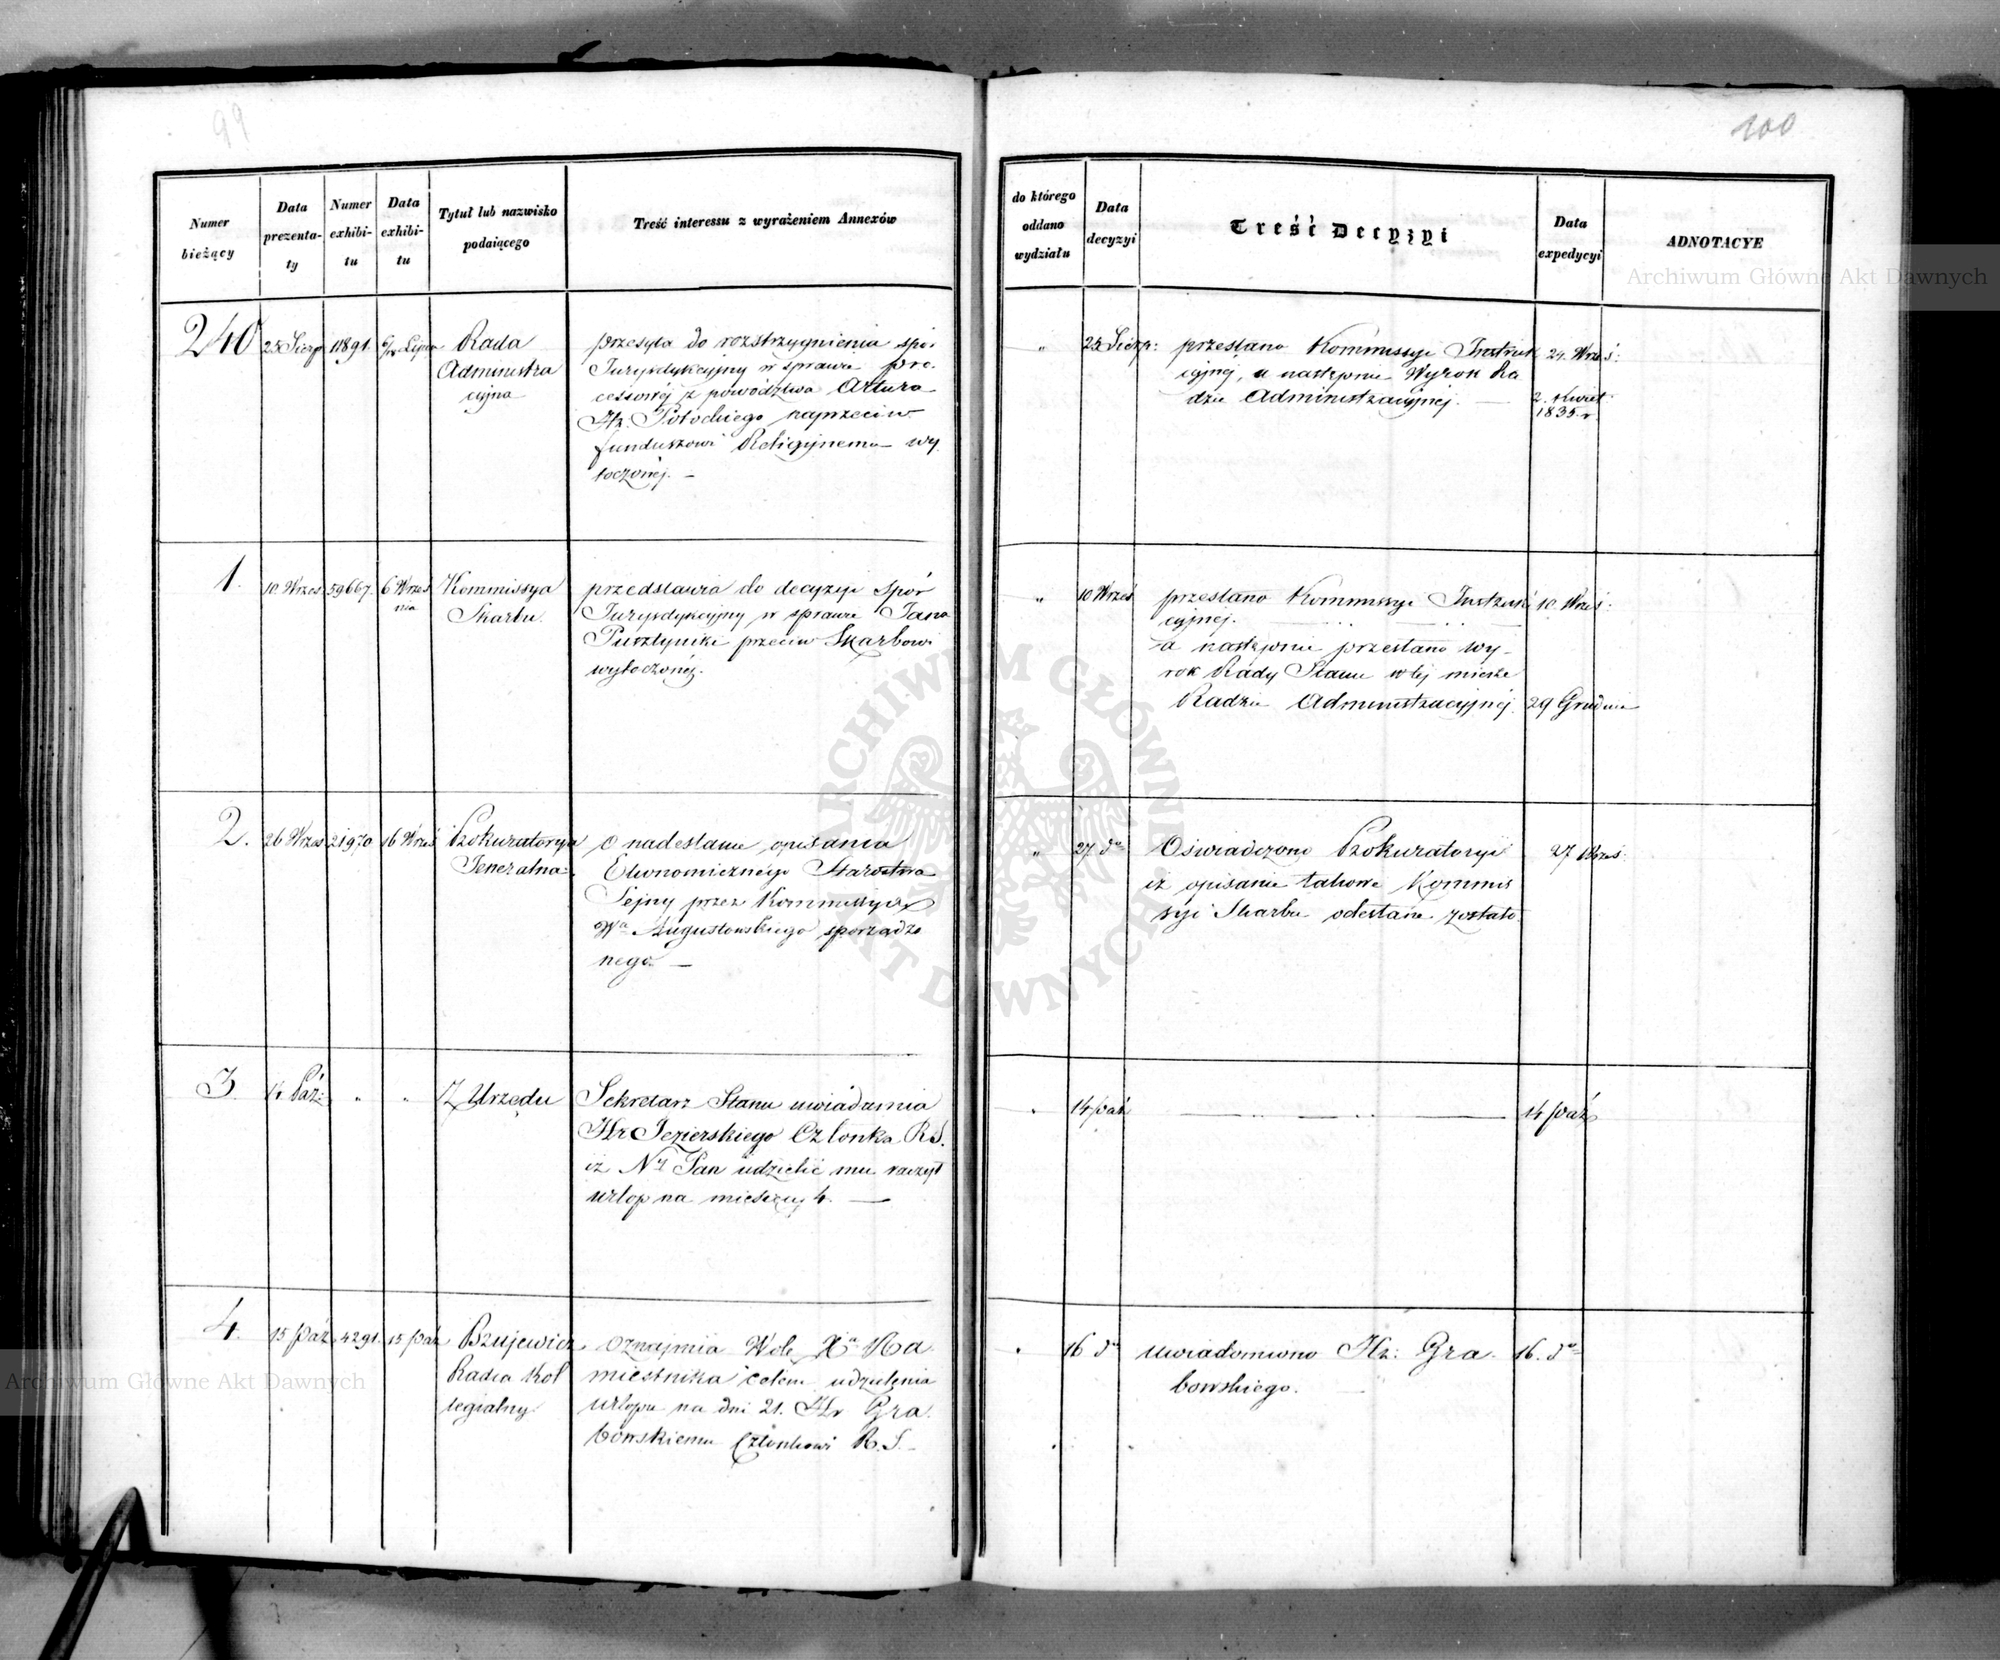 99
100
Numer bieżący
Data prezentaty
Numer exhibitu
Data exhibitu
Tytuł lub nazwisko podaiącego
Treść interessu z wyrażeniem Annexów
do którego oddano wydziału
Data decyzyi
Treść Decyzyi
Data expedycyi
ADNOTACYE
240
25 Sierp
11891
Lipca
Rada
Administra
cyjna
przesyła do rozstrzygnienia spór
Jurysdykcyjny w sprawie pro-
cessowéj z powództwa Artura
Hr. Potockiego naprzeciw
funduszowi Religijnemu wy
toczonéj. —
"
25 Sierp:
przesłano Kommissyi Instruk
cyjnéj, a następnie Wyrok Ra
dzie Administracyjnéj. —
24 Wrześ:
2. Kwiet
1835. r
1.
10. Wrzes
59667.
6 Wrześ
nia
Kommissya
Skarbu.
przedstawia do decyzyi spór
Jurysdykcyjny w sprawie Jana
Pusztynika przeciw Skarbowi
wytoczonéj.
"
10 Wrześ
przesłano Kommissyi Instruk
cyjnéj.
a następnie przesłano wy-
rok Rady Stanu w téj mierze
Radzie Administracyjnéj.
10. Wrześ:
29 Grudnia
2.
26 Wrzes
21970
16 Wrześ
Prokuratorya
Jeneralna.
O nadesłanie opisania
Ekonomicznego Starostwa
Sejny przez Kommissyą
Wa Augustowskiego sporządzo
nego. —
"
27 da
Oświadczono Prokuratoryi
iż opisanie takowe Kommis
syi Skarbu odesłane zostało
27 Wrześ:
3
14 Paź:
"
"
Z Urzędu
Sekretarz Stanu uwiadamia
Hr Jezierskiego Członka R.S.
iż Ny Pan udzielić mu raczył
urlop na miesięcy 4. —
"
14 paź
14 paź
4.
15 paź
4291.
15 paź
Brujewicz
Radca Kol
legialny
Oznajmia Wolę Xa Na
miestnika celem udzielenia
urlopu na dni 21. Hr Gra
bowskiemu Członkowi R.S. -
"
16 da
uwiadomiono Hr: Gra
bowskiego. —
16. da
Archiwum Główne Akt Dawnych
ARCHIWUM GŁÓWNE AKT DAWNYCH
Archiwum Główne Akt Dawnych